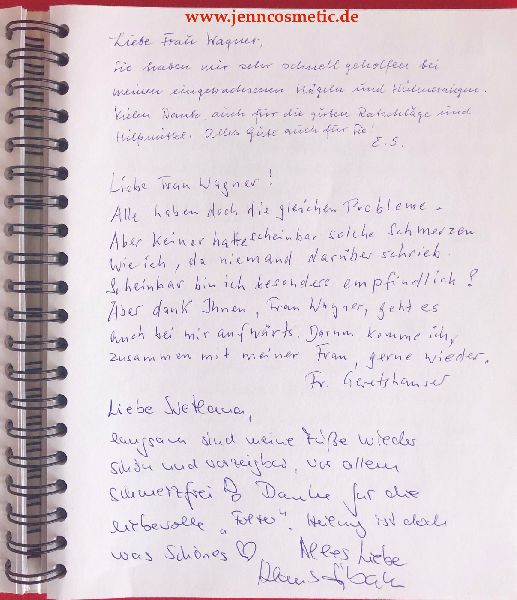 www.jenncosmetic.de
Liebe Frau Wagner,
Sie haben mir sehr schnell geholfen bei
meinen eingewachsenen Nägeln und Hühneraugen.
Vielen Dank auch für die guten Ratschläge und
Hilfsmittel. Alles Gute auch für Sie!
E.S.
Liebe Frau Wagner!
Alle haben doch die gleichen Probleme.
Aber keiner hatte scheinbar solche Schmerzen
wie ich, da niemand darüber schrieb.
Scheinbar bin ich besonders empfindlich?
Aber dank Ihnen, Frau Wagner, geht es
auch bei mir aufwärts. Darum komme ich,
zusammen mit meiner Frau, gerne wieder.
Fr. Geretshauser
Liebe Svetlana,
langsam sind meine Füße wieder
schön und vorzeigbar, vor allem
schmerzfrei Danke für die
liebevolle „Folter“. Heilung ist doch
was Schönes ♡ Alles Liebe